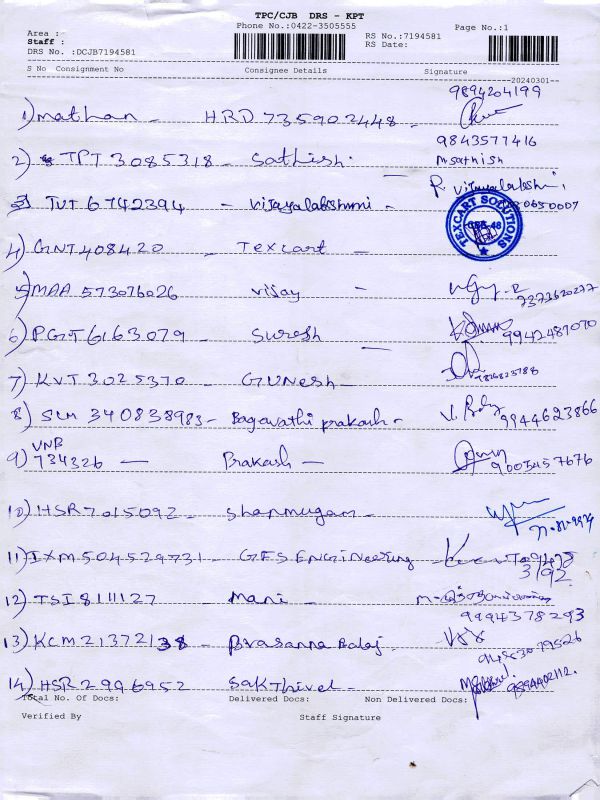 TPC/CJB DRS - KPT
Phone No.:0422-3505555
Page No.:1
Area :-
Staff :-
DRS No. :DCJB7194581
RS No.:7194581
RS Date:
S No Consignment No Consignee Details Signature
20240301
9894204199
1) mathan - HRD 735902448 -
9843577416
2) TPT 3085318 - Sathish - msathish
R. Vijayalakshmi
3) TVT 6742394 - Vijayalakshmi -
TEXCART SOLUTIONS
CBE-48
4) GNT408420 - Texcart -
5) MAA 573076026 Vijay -
7373620277
6) PGT6163079 - Suresh
9942487070
7) KVT 3025370 - GUNesh -
8) SLM 340838983 - Bagavathi prakash -
9944623866
9) VNB 734326 - Prakash -
9003457676
10) HSR7015092 - Shanmugam -
11) IXM504529731 - GES ENGineering
12) TSI8111127 - Mani -
9994378293
13) KCM21372138 - Prasanna Balaji
14) HSR2996952 SakThivel -
9894402112.
Total No. Of Docs: Delivered Docs: Non Delivered Docs:
Verified By Staff Signature